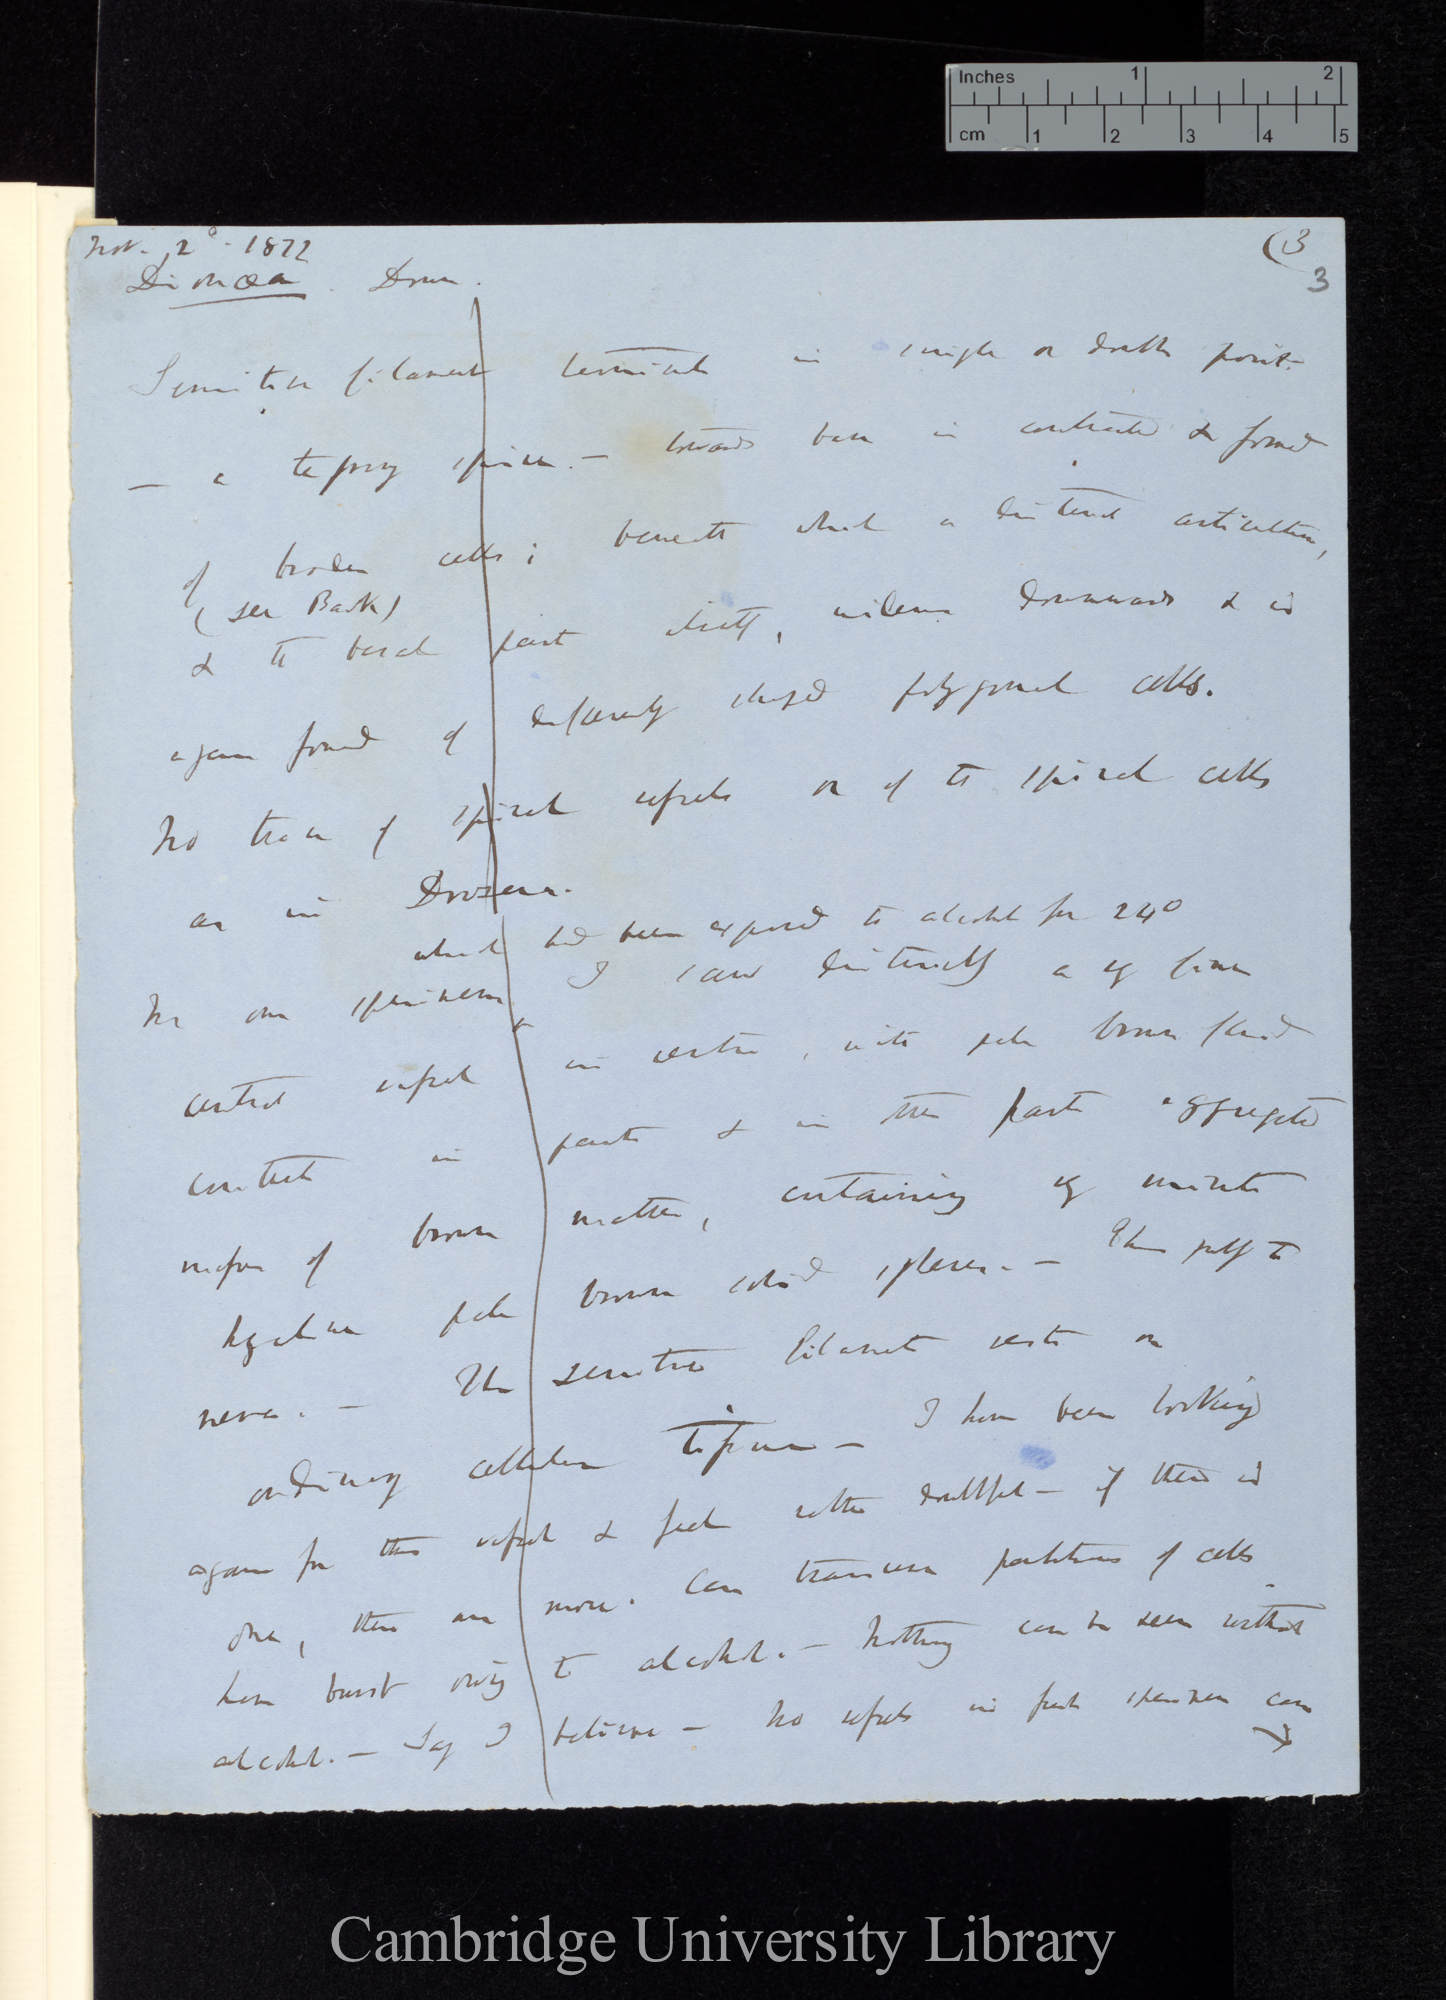 Inches 1 2
cm 1 2 3 4 5
Nov. 2d. 1872
(3
3
Dionæa. Down.
Sensitive filament terminate in single or double point
— a tapering spine. — towards base is contracted & formed
of broader cells; beneath which a distinct articulation,
(see Back)
& the basal part which, widens downwards & is
again formed of differently shaped polygonal cells.
No trace of spiral vessels or of the spiral cells
as in Drosera.
which had been exposed to alcohol for 24°
In one specimen I saw distinctly a vy fine
central vessel in centre, with pale brown fluid
contents in parts & in other parts aggregated
masses of brown matter, containing vy minute
hyaline pale brown solid spheres. —
never. — The sensitive filaments rests on
ordinary cellular tissue — I have been looking
again for this vessel & feel rather doubtful — if there is
one, there are more. Can transverse partitions of cells
have burst owing to alcohol. — Nothing can be seen without
alcohol. — Say I believe — No vessels in fresh specimen can
Cambridge University Library